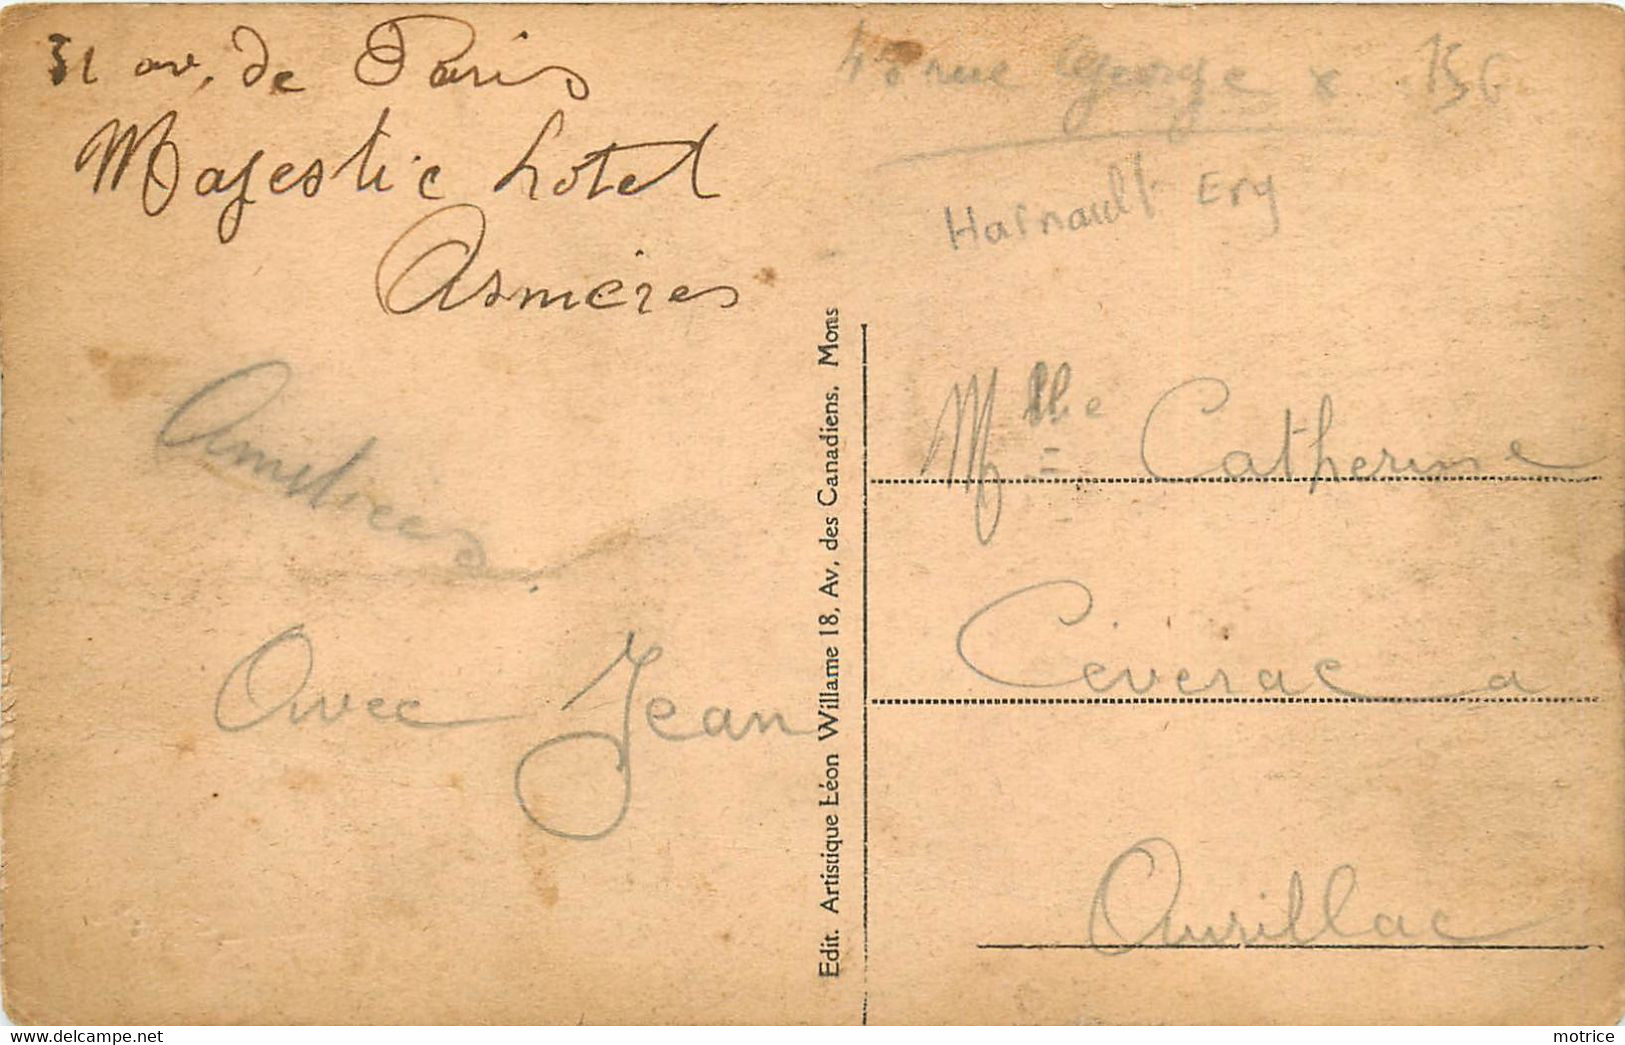 31 av. de Paris
Majestic hotel
Asnières
rue George
Harnault Ery
Amitiées
Avec Jean
Edit. Artistique Léon Willame 18, Av. des Canadiens, Mons
Mlle Catherine
Céverac à
Aurillac
motrice